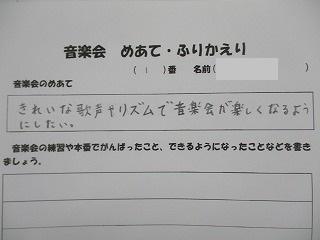 音楽会 めあて・ふりかえり
(1)番 名前( )
音楽会のめあて
きれいな歌声やリズムで音楽会が楽しくなるよう
にしたい。
音楽会の練習や本番でがんばったこと、できるようになったことなどを書き
ましょう。